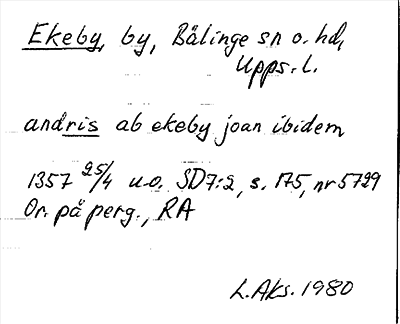 Ekeby, by, Bälinge sn o. hd,
Upps. l.
andris ab ekeby joan ibidem
1357 25/4 u.o. SD7:2, s. 175, nr 5729
Or. på perg., RA
L. Aks. 1980